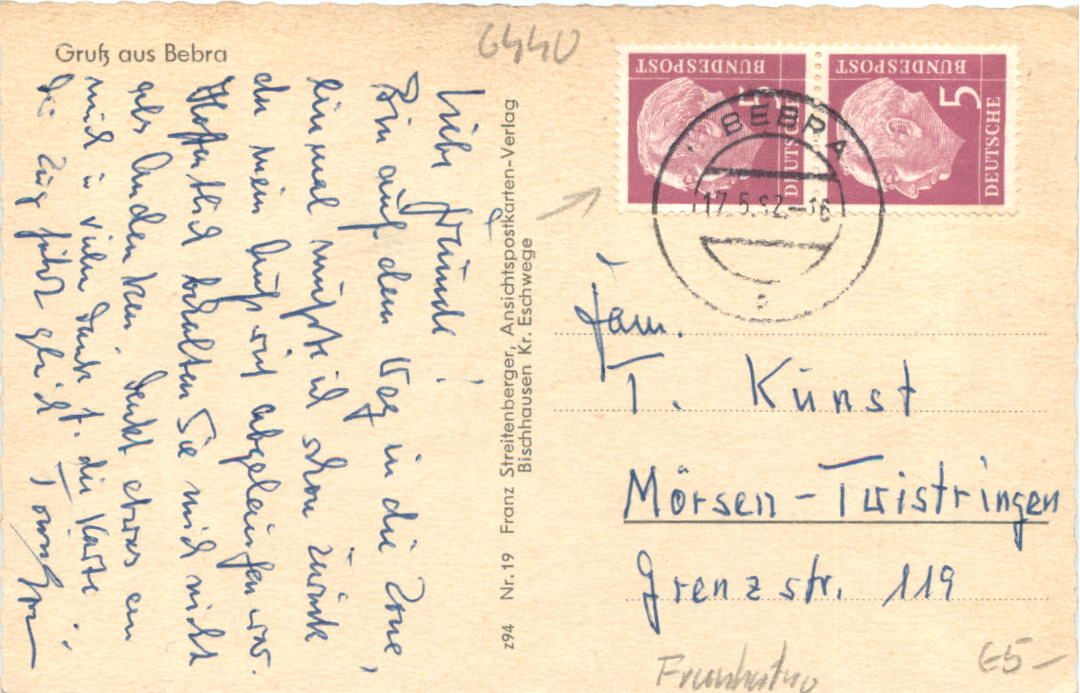 Gruß aus Bebra
6440
Liebe Freunde!
Bin auf dem Weg in die Zone,
einmal mußte ich schon zurück
da mein
abgelaufen war.
Hoffentlich behalten Sie mich nicht
als Andenken. Denkt etwas an
mich u vielen Dank f. die Karte
der Zug fährt gleich
z94 Nr. 19 Franz Streitenberger, Ansichtspostkarten-Verlag
Bischhausen Kr. Eschwege
DEUTSCHE BUNDESPOST 5
DEUTSCHE BUNDESPOST 5
BEBRA
17.5. -16
Fam.
T. Kunst
Mörsen - Twistringen
Grenzstr. 119
€5-